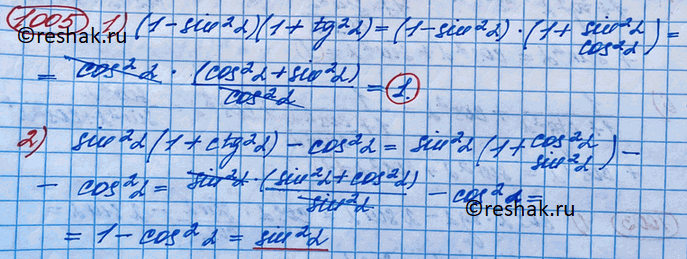 1005 1) (1-sin²α)(1+tg²α)=(1-sin²α)·(1+sin²α/cos²α)=
= cos²α · (cos²α+sin²α)/cos²α = 1.
©reshak.ru
2) sin²α(1+ctg²α)-cos²α=sin²α(1+cos²α/sin²α)-
- cos²α = sin²α·(sin²α+cos²α)/sin²α - cos²α=
©reshak.ru
= 1-cos²α = sin²α